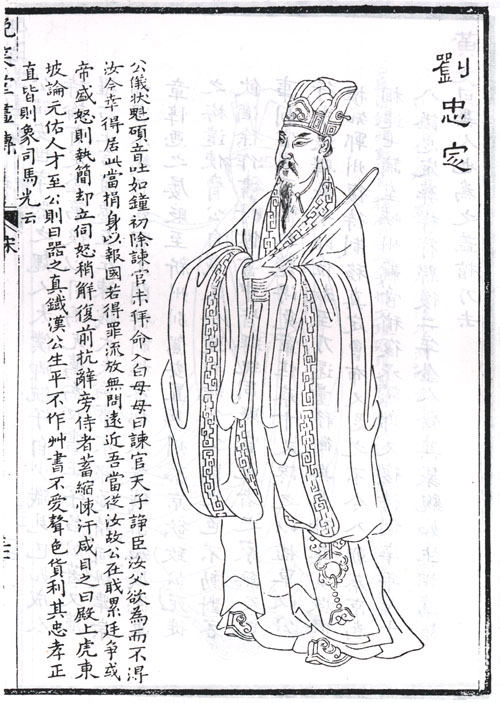 劉忠定
公儀狀魁碩音吐如鐘初除諫官未拜命入白母母曰諫官天子諍臣汝父欲為而不得
汝今幸得居此當捐身以報國若得罪流放無問遠近吾當從汝故公在職累廷爭或
帝盛怒則執簡却立伺怒稍解復前抗辭旁侍者蓄縮悚汗咸目之曰殿上虎東
坡論元佑人才至公則曰器之真鐵漢公生平不作艸書不愛聲色貨利其忠孝正
直皆則象司馬光云
晚笑堂畫傳
宋